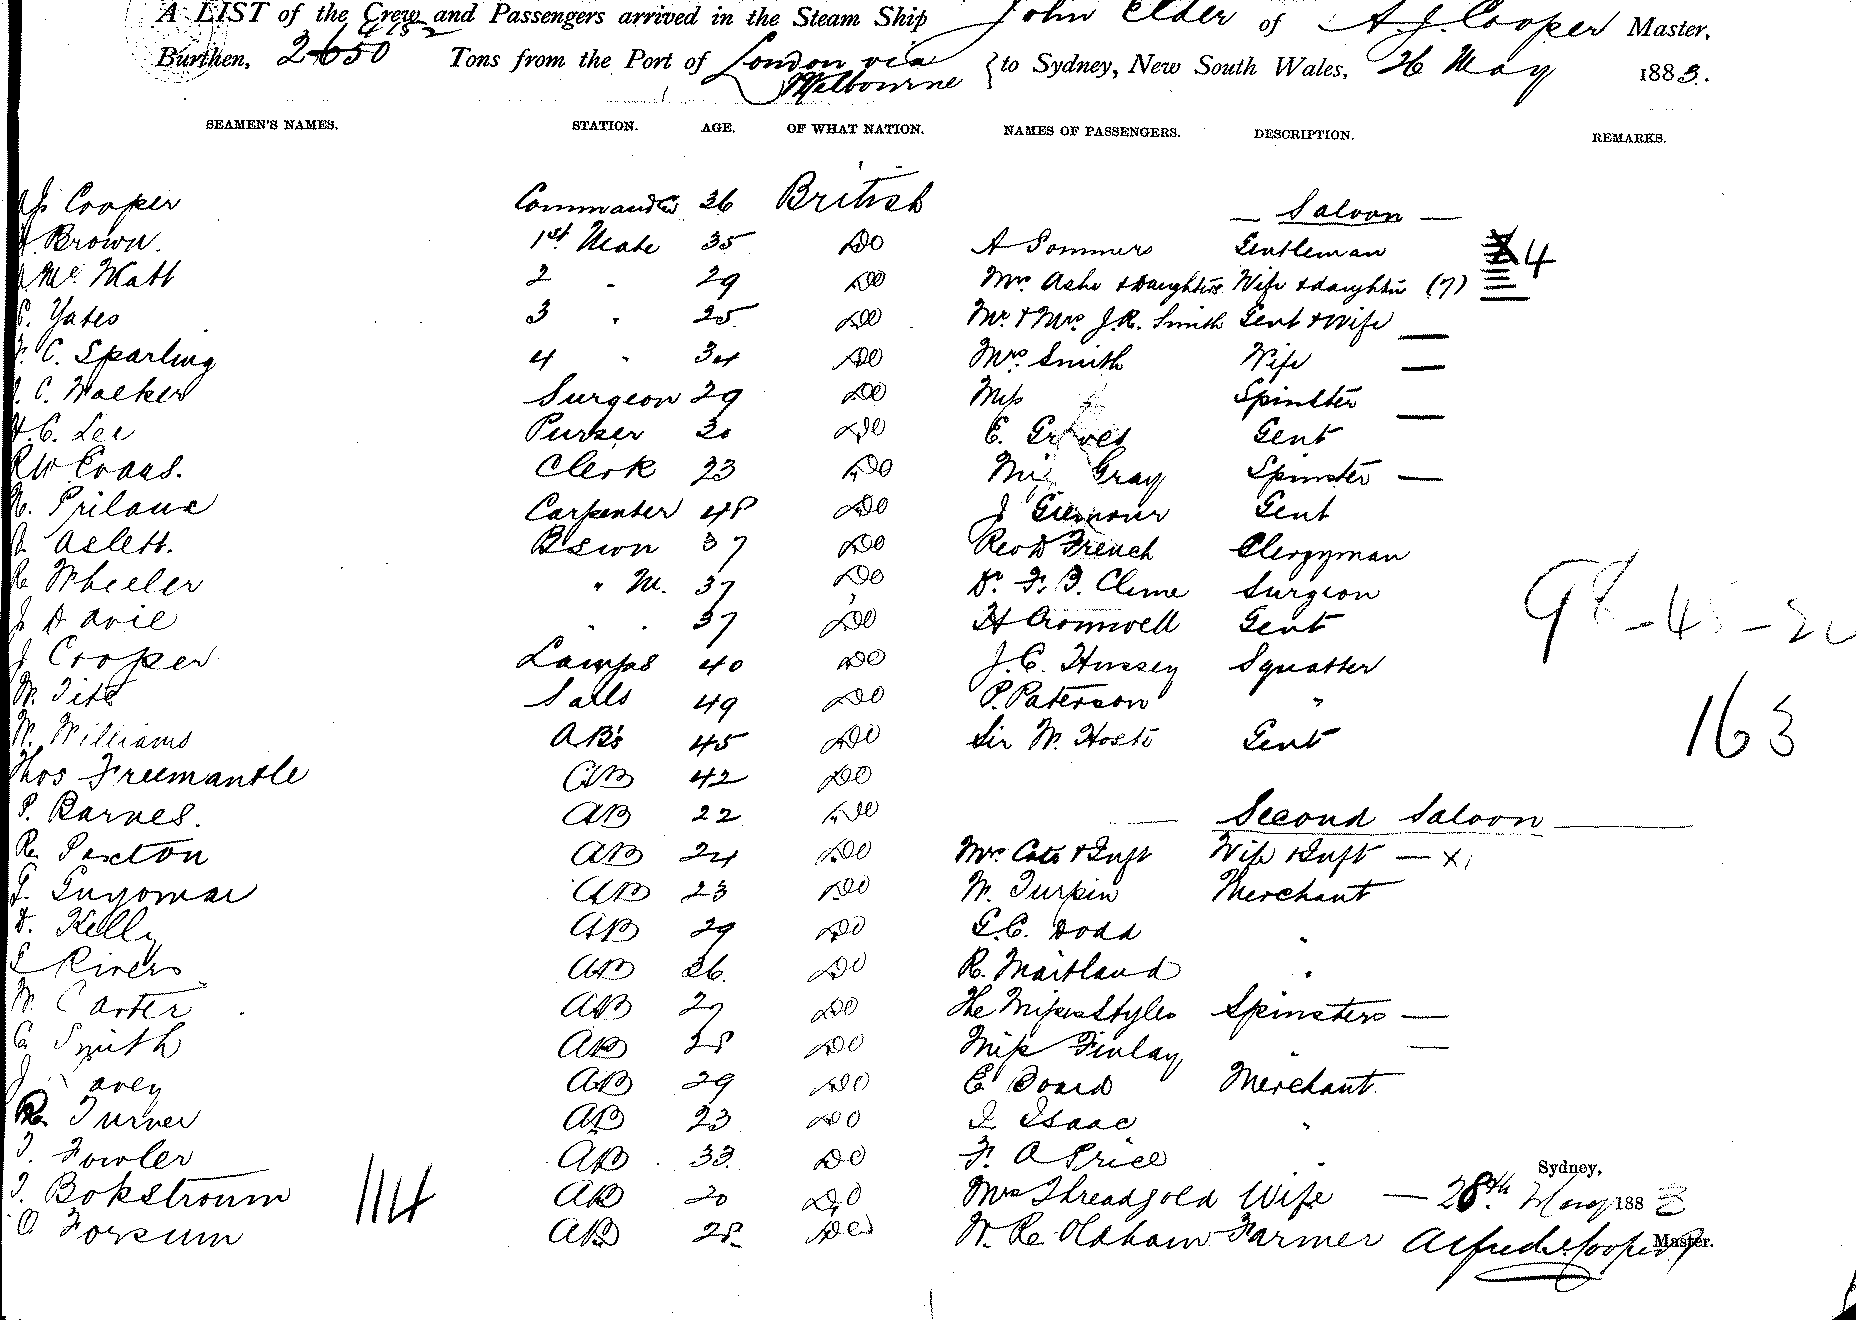 A LIST of the Crew and Passengers arrived in the Steam Ship John Elder of A. J. Cooper Master,
Burthen, 2650 4152 Tons from the Port of London via Melbourne to Sydney, New South Wales, 26 May 1883.
SEAMEN'S NAMES. STATION. AGE. OF WHAT NATION. NAMES OF PASSENGERS. DESCRIPTION. REMARKS.
AJ Cooper Commander 36 British — Saloon —
Brown. 1st Mate 35 Do A Sommers Gentleman 4
McWatt 2 " 29 Do Mrs Ashe & Daughters Wife & daughter (7)
Yates 3 " 25 Do Mr & Mrs J.R. Smith Gent & Wife —
C. Sparling 4 " 34 Do Mrs Smith Wife —
C. Walker Surgeon 29 Do Miss Spinster —
H.C. Lee Purser 30 Do E. Graves Gent
RW Evans. Clerk 23 Do Miss Gray Spinster —
Carpenter 48 Do J Gilmour Gent
Aslett. Bswn 37 Do Revd French Clergyman
R Wheeler " M. 37 Do Dr. F. J. Clune Surgeon
J Davie " . 37 Do H Cromwell Gent
J Cooper Lamps 40 Do J. C. Hussey Squatter
W. Tite Sails 49 Do P. Paterson "
W. Williams ABs 45 Do Sir W. Hoste Gent
Thos Freemantle AB 42 Do
P. Barnes. AB 22 Do — Second Saloon —
R. Paxton AB 24 Do Mrs Cato & Inft Wife & Inft — x1
AB 23 Do W. Turpin Merchant
D. Kelly AB 29 Do G.C. Dodd "
Rivers AB 26. Do R. Maitland "
W. Carter AB 27 Do The Misses Styles Spinsters —
G Smith AB 28 Do Miss Finlay " —
J avey AB 29 Do E Doard Merchant.
R. Turner AB 23 Do I Isaac "
J. Fowler AB 33. Do F. A Price "
J. Bokstroum AB 20 Do Mrs Threadgold Wife — Sydney, 28th May 1883
O Forsum AB 28 Do W. R. Oldham Farmer Alfred J. Cooper Master.
98 - 45 - 20
163
114